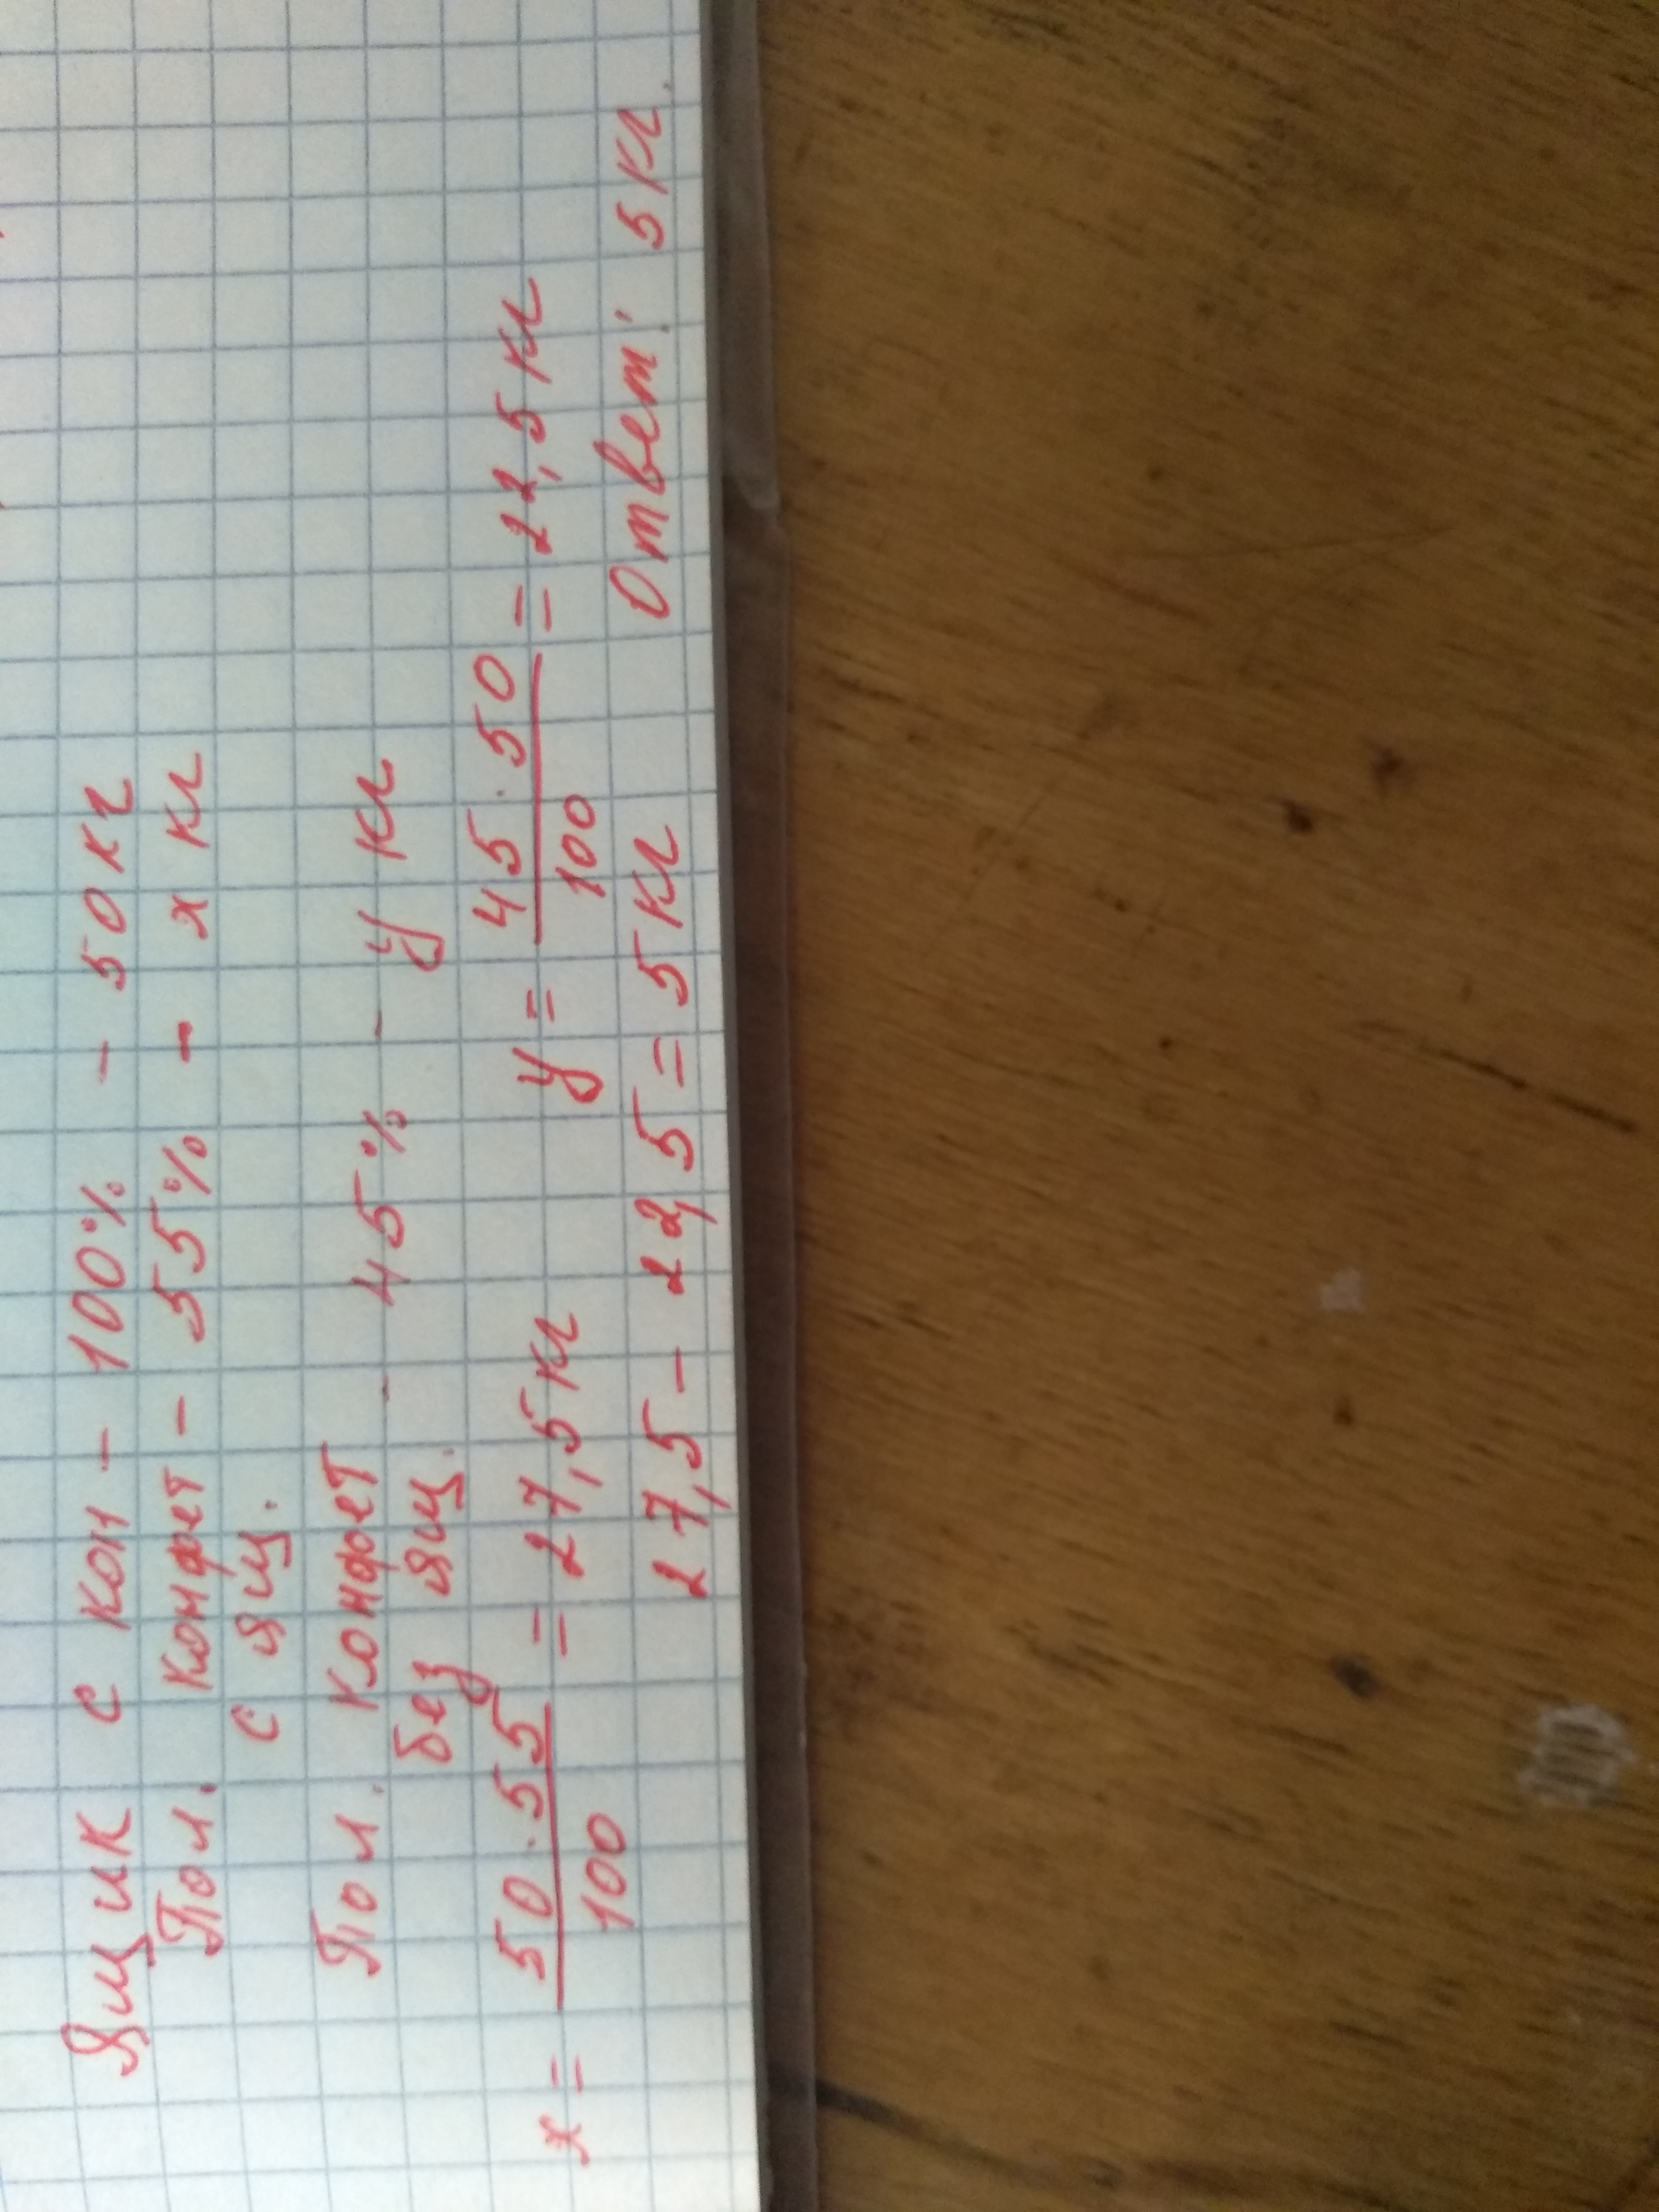 Ящик с кон - 100% - 50 кг
Пол. конфет - 55% - х кг
с ящ.
Пол. конфет - 45% - у кг
без ящ.
х = 50 · 55 / 100 = 27,5 кг у = 45 · 50 / 100 = 22,5 кг
27,5 - 22,5 = 5 кг Ответ: 5 кг.